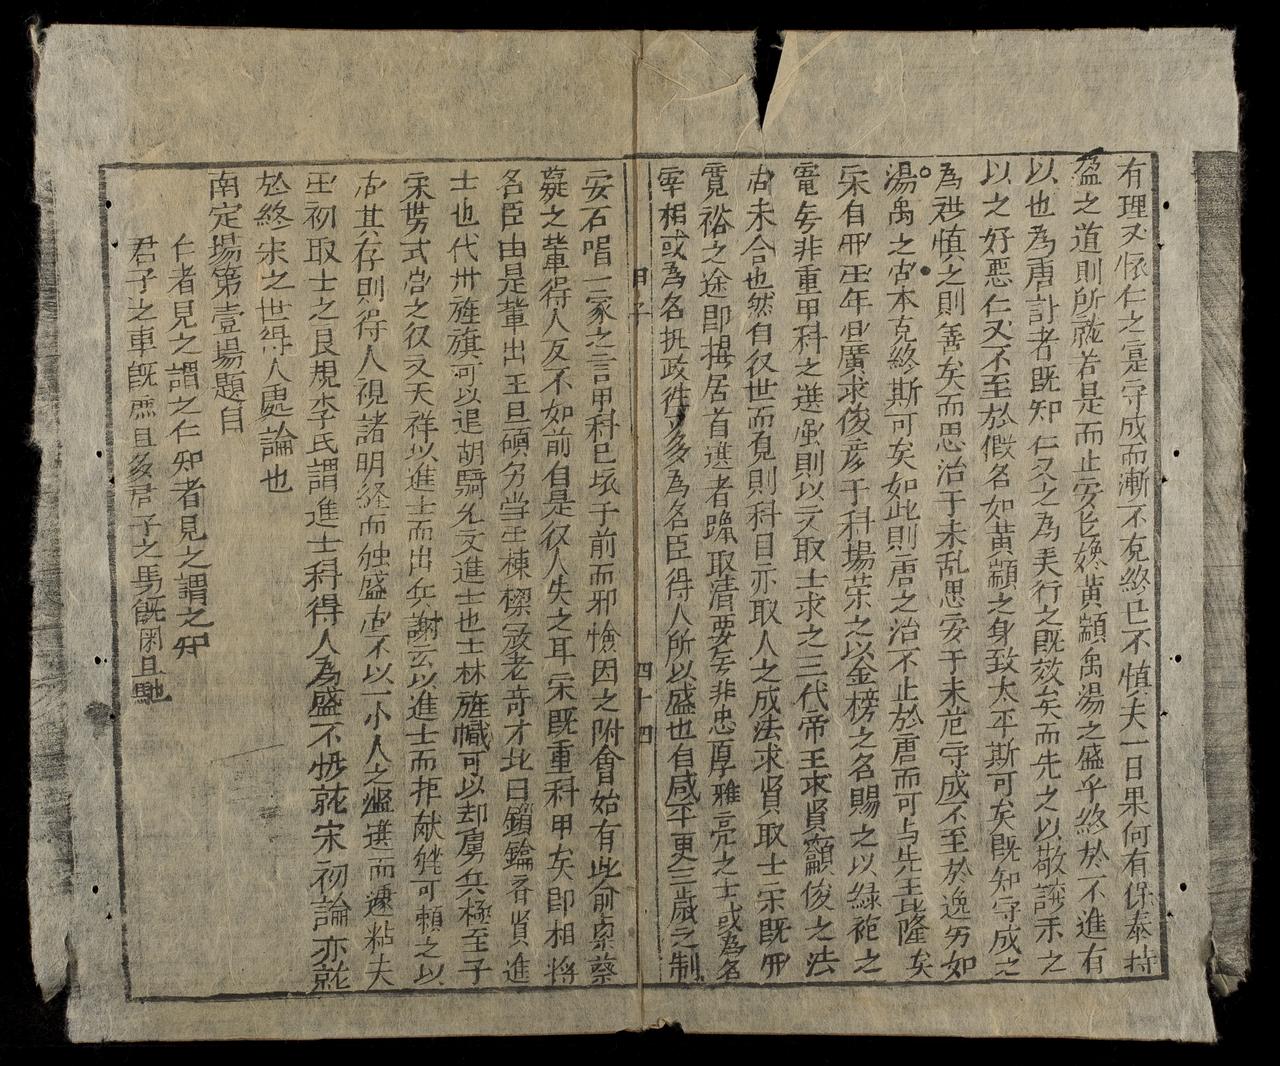 有理又依仁之寔守成而漸不克終已不慎夫一日果何有保泰持
盈之道則所就若是而止安匕媲黄顓禹湯之盛乎終於不進有
以也為唐計者既知仁义之為美行之既效矣而先之以敬謹示之
以之好恶仁义不至於假名如黄顓之身致太平斯可矣既知守成之
為 慎之則善矣而思治于未乱思安于未危守成不至於逸労如
湯禹之 本克終斯可矣如此則唐之治不止於唐而可与先王比隆矣
宋自 年 廣求俊彦于科場荣之以金榜之名賜之以緑袍之
寵 非重甲科之選 則以文取士求之三代帝王求賢籲俊之法
未合也然自后世而覓則科目亦取人之成法求賢取士宋既
寛裕之途即 居首選者躐取清要 非忠厚雅亮之士或為名
宰相或為名执政徃々多為名臣得人所以盛也自咸平更三歳之制
日子 四十四
安石唱一家之言甲科已坏于前而邪憸因之附會始有此俞 蔡
薿之輩得人反不如前自是仅人失之耳宋既重科甲矣即相將
名臣由是輩出王旦 当 棟樑 老奇才北日鎖鑰 賢進
士也代 旌旗可以退胡騎允文進士也士林旌幟可以却虜兵極至子
宋势式 之仅文天祥以進士而出兵謝云以進士而拒献 可頼之以
其存則得人視諸明経而独盛 不以一小人之 選而 夫
初取士之良規李氏謂進士科得人為盛不 就宋初論亦就
於終宋之世得人處論也
南定場第壹場題目
仁者見之謂之仁知者見之謂之知
君子之車既庶且多君子之馬既閑且馳